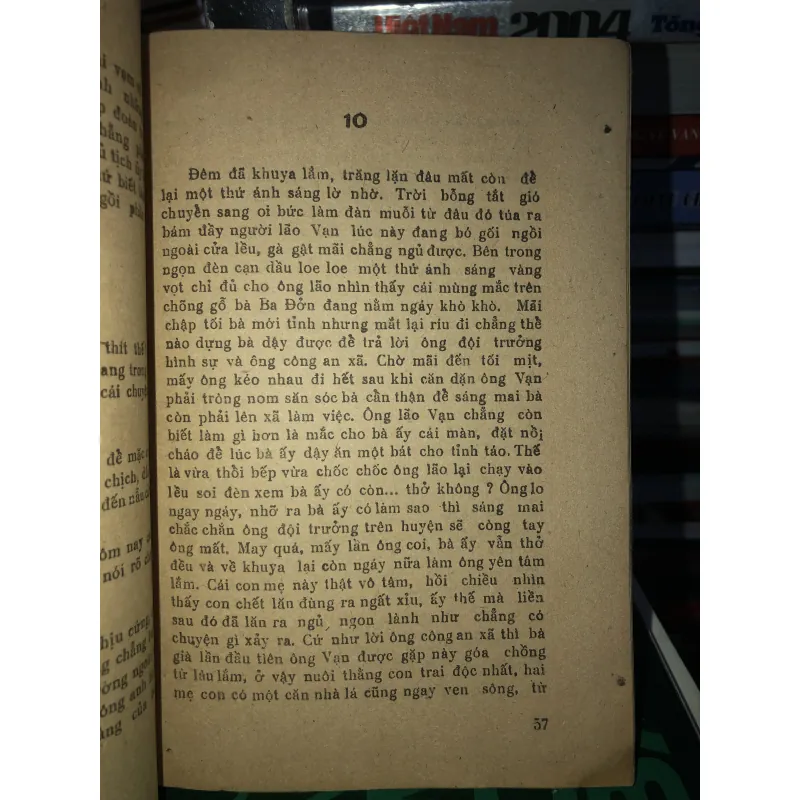 Việt Nam 2004
Tổng
10
Đêm đã khuya lắm, trăng lặn đâu mất còn để
lại một thứ ánh sáng lờ nhờ. Trời bỗng tắt gió
chuyển sang oi bức làm đàn muỗi từ đâu đó túa ra
bám đầy người lão Vạn lúc này đang bó gối ngồi
ngoài cửa lều, gà gật mãi chẳng ngủ được. Bên trong
ngọn đèn cạn dầu loe loe một thứ ánh sáng vàng
vọt chỉ đủ cho ông lão nhìn thấy cái mùng mắc trên
chõng gỗ bà Ba Đởn đang nằm ngáy khò khò. Mãi
chập tối bà mới tỉnh nhưng mắt lại ríu đi chẳng thể
nào dựng bà dậy được để trả lời ông đội trưởng
hình sự và ông công an xã. Chờ mãi đến tối mịt,
mấy ông kéo nhau đi hết sau khi căn dặn ông Vạn
phải trông nom săn sóc bà cẩn thận để sáng mai bà
còn phải lên xã làm việc. Ông lão Vạn chẳng còn
biết làm gì hơn là mắc cho bà ấy cái màn, đặt nồi
cháo để lúc bà ấy dậy ăn một bát cho tỉnh táo. Thế
là vừa thổi bếp vừa chốc chốc ông lão lại chạy vào
lều soi đèn xem bà ấy có còn... thở không ? Ông lo
ngay ngáy, nhỡ ra bà ấy có làm sao thì sáng mai
chắc chắn ông đội trưởng trên huyện sẽ còng tay
ông mất. May quá, mấy lần ông coi, bà ấy vẫn thở
đều và về khuya lại còn ngáy nữa làm ông yên tâm
lắm. Cái con mẹ này thật vô tâm, hồi chiều nhìn
thấy con chết lăn đùng ra ngất xỉu, ấy thế mà liền
sau đó đã lăn ra ngủ ngon lành như chẳng có
chuyện gì xảy ra. Cứ như lời ông công an xã thì bà
già lần đầu tiên ông Vạn được gặp này góa chồng
từ lâu lắm, ở vậy nuôi thằng con trai độc nhất, hai
mẹ con có một căn nhà lá cũng ngay ven sông, từ
57